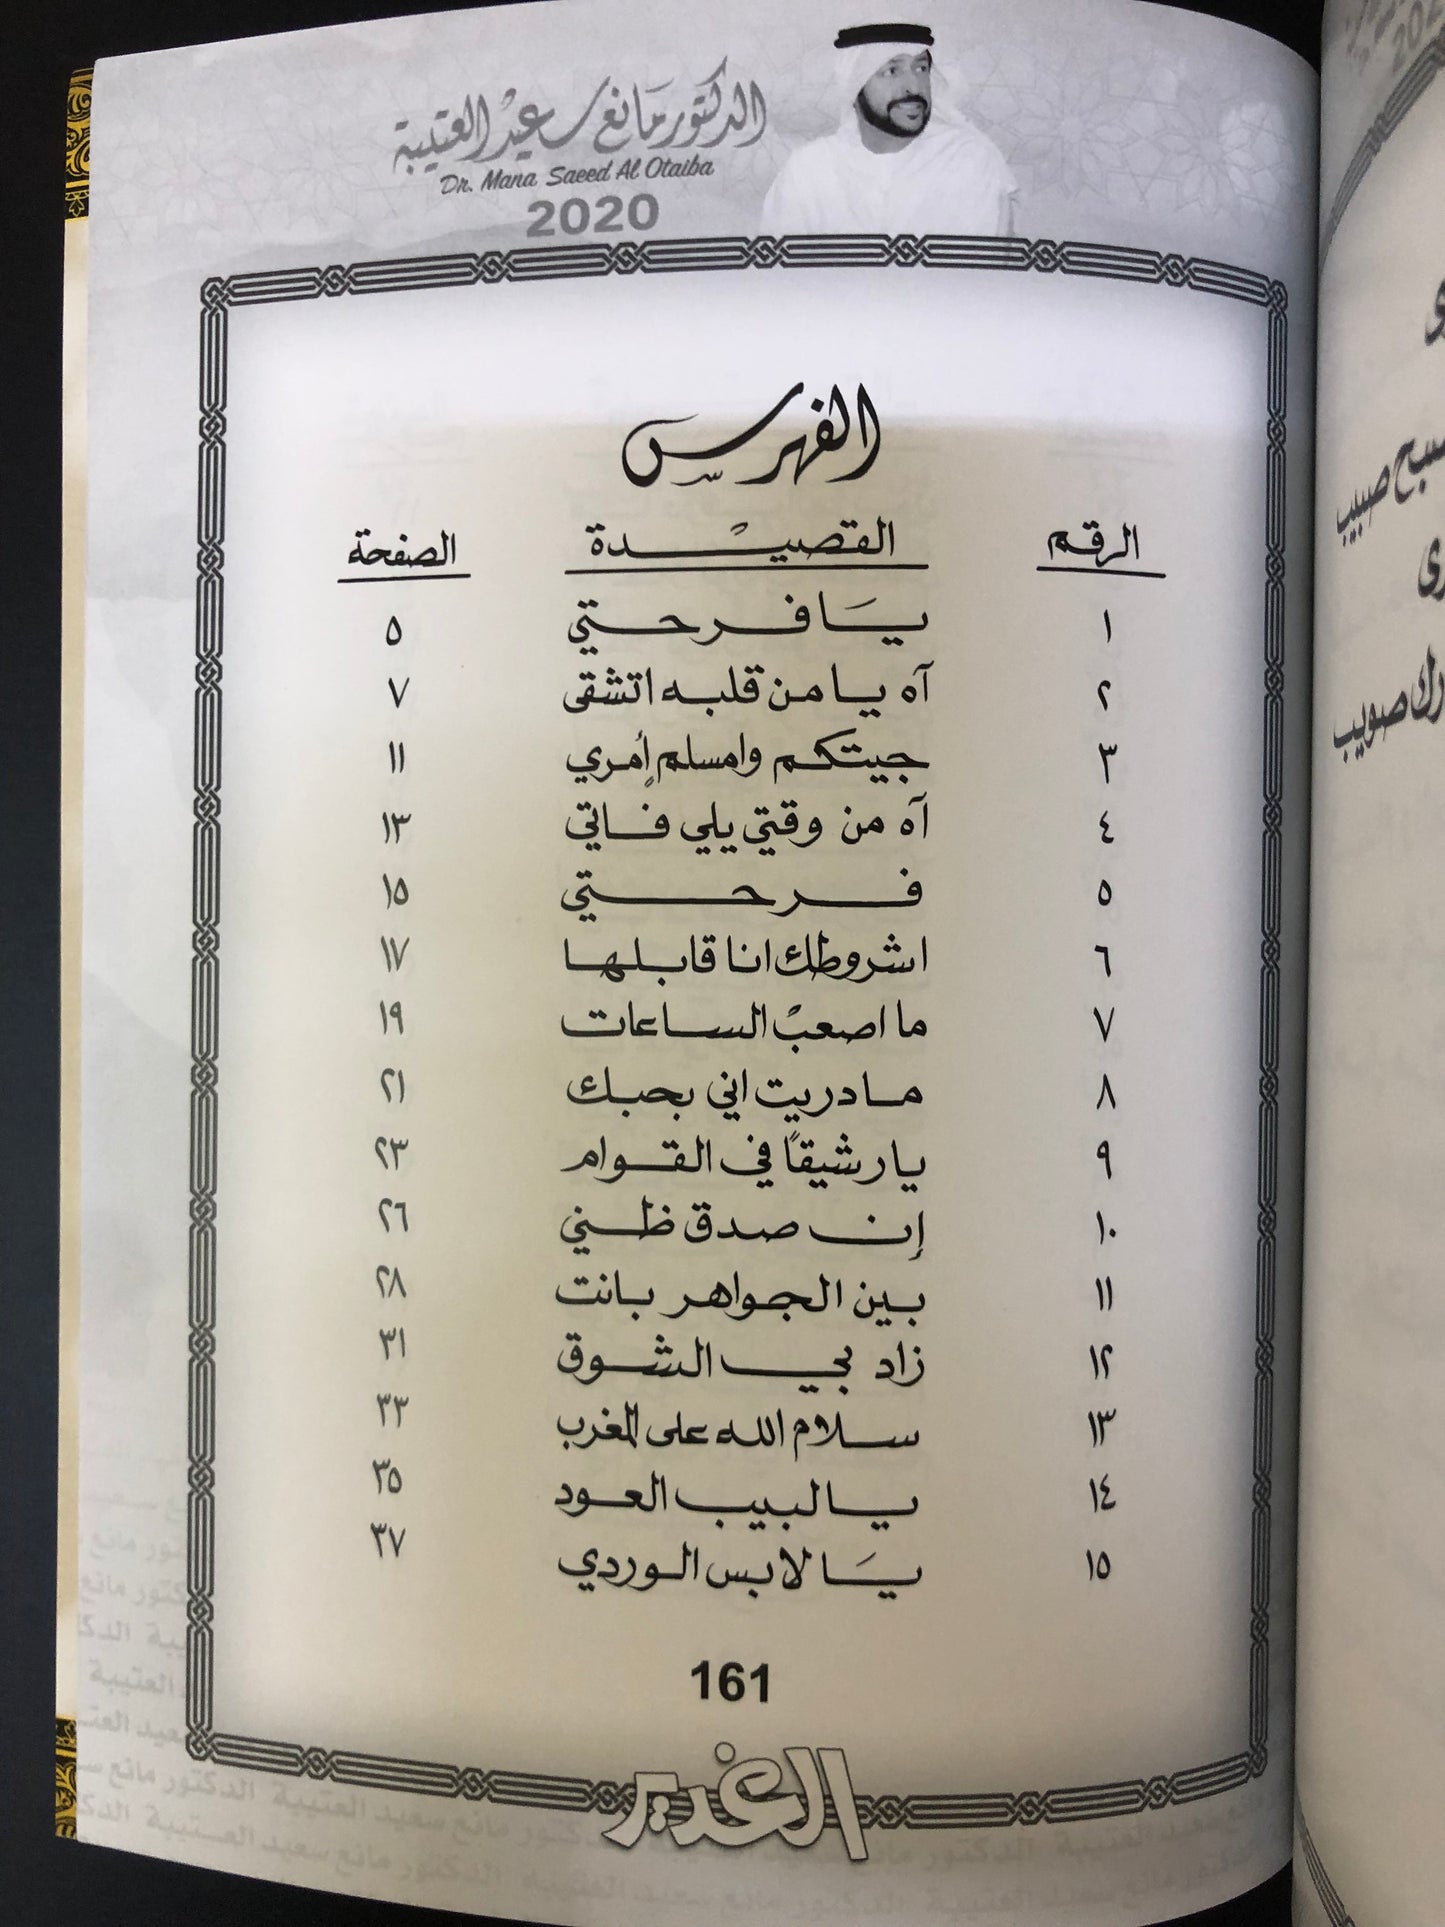 الدكتور مانع سعيد العتيبة
Dr. Mana Saeed Al Otaiba
2020
الفهرس
الرقم القصيدة الصفحة
١ يا فرحتي ٥
٢ آه يا من قلبه اتشقى ٧
٣ جيتكم وامسلم أمري ١١
٤ آه من وقتي يلي فاتي ١٣
٥ فرحتي ١٥
٦ اشروطك انا قابلها ١٧
٧ ما اصعبْ الساعات ١٩
٨ ما دريت اني بحبك ٢١
٩ يا رشيقاً في القوام ٢٣
١٠ إن صدق ظني ٢٦
١١ بين الجواهر بانت ٢٨
١٢ زاد بي الشوق ٣١
١٣ سلام الله على المغرب ٣٣
١٤ يا لبيب العود ٣٥
١٥ يَا لابس الوردي ٣٧
161
الغدير